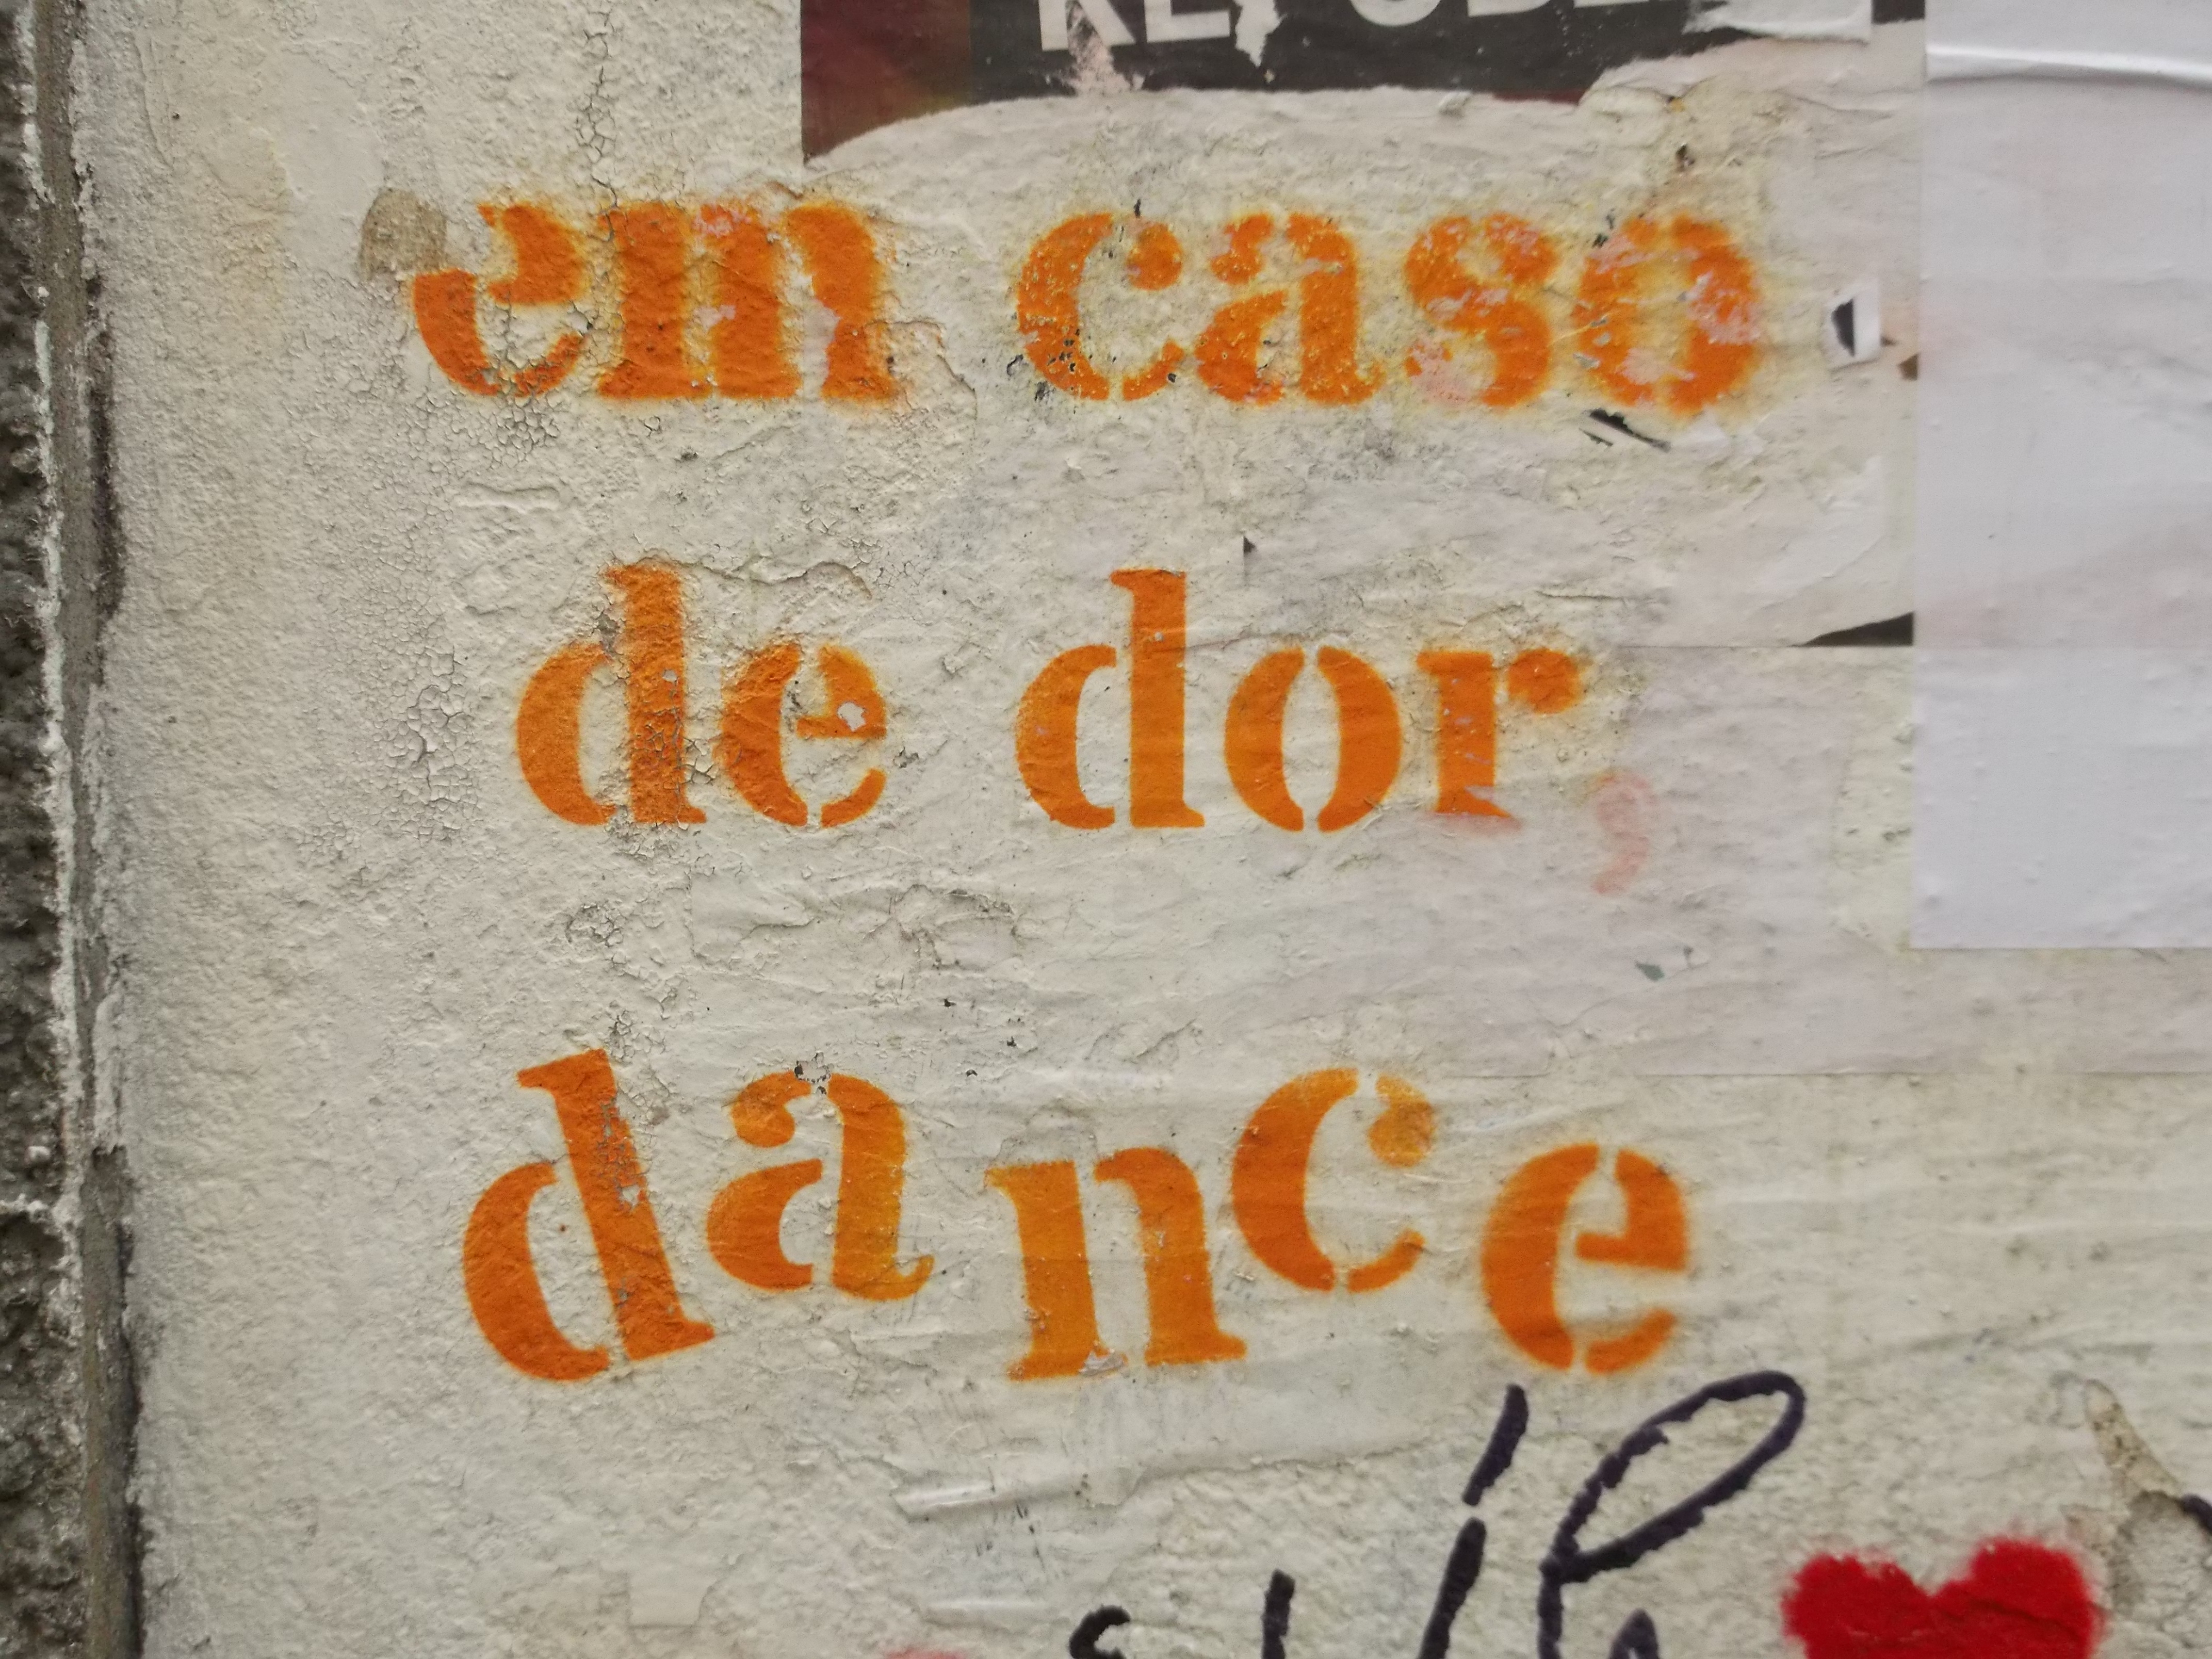 em caso
de dor,
dance